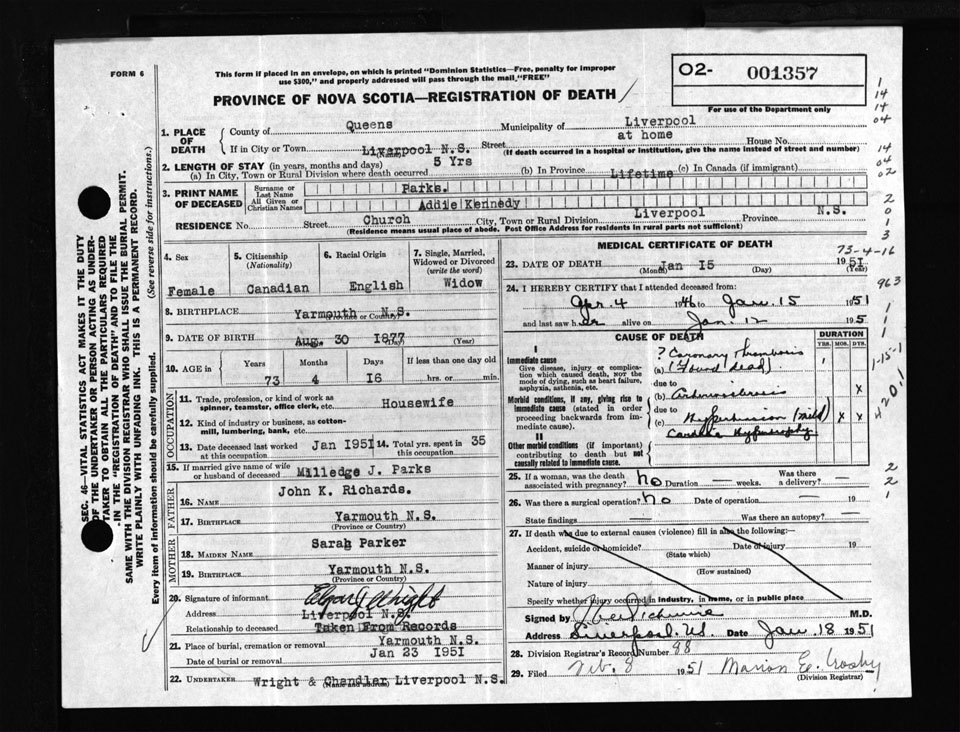 FORM 6
This form if placed in an envelope, on which is printed "Dominion Statistics—Free, penalty for improper
use $300," and properly addressed will pass through the mail, "FREE"
PROVINCE OF NOVA SCOTIA—REGISTRATION OF DEATH
02- 001357
For use of the Department only
SEC. 46—VITAL STATISTICS ACT MAKES IT THE DUTY
OF THE UNDERTAKER OR PERSON ACTING AS UNDER-
TAKER TO OBTAIN ALL THE PARTICULARS REQUIRED
IN THE "REGISTRATION OF DEATH" AND TO FILE THE
SAME WITH THE DIVISION REGISTRAR WHO SHALL ISSUE THE BURIAL PERMIT.
WRITE PLAINLY WITH UNFADING INK. THIS IS A PERMANENT RECORD.
Every item of information should be carefully supplied. (See reverse side for instructions.)
1. PLACE OF DEATH
County of Queens Municipality of Liverpool
If in City or Town Liverpool N.S. Street at home House No.
(Name)
(If death occurred in a hospital or institution, give the name instead of street and number)
2. LENGTH OF STAY (in years, months and days)
(a) In City, Town or Rural Division where death occurred 5 Yrs (b) In Province Lifetime (c) In Canada (if immigrant)
3. PRINT NAME OF DECEASED
Surname or Last Name Parks.
All Given or Christian Names Addie Kennedy
RESIDENCE No. Street Church City, Town or Rural Division Liverpool Province N.S.
(Residence means usual place of abode. Post Office Address for residents in rural parts not sufficient)
4. Sex Female
5. Citizenship (Nationality) Canadian
6. Racial Origin English
7. Single, Married, Widowed or Divorced (write the word) Widow
8. BIRTHPLACE Yarmouth N.S.
(Province or Country)
9. DATE OF BIRTH Aug. 30 1877
(Day) (Year)
10. AGE in Years 73 Months 4 Days 16 If less than one day old hrs. or min.
OCCUPATION
11. Trade, profession, or kind of work as
spinner, teamster, office clerk, etc. Housewife
12. Kind of industry or business, as cotton-
mill, lumbering, bank, etc.
13. Date deceased last worked at this occupation Jan 1951 14. Total yrs. spent in this occupation 35
15. If married give name of wife or husband of deceased Milledge J. Parks
FATHER
16. NAME John K. Richards.
17. BIRTHPLACE Yarmouth N.S.
(Province or Country)
MOTHER
18. MAIDEN NAME Sarah Parker
19. BIRTHPLACE Yarmouth N.S.
(Province or Country)
20. Signature of informant Elgar J Wright
Address Liverpool N.S.
Relationship to deceased Taken From Records
21. Place of burial, cremation or removal Yarmouth N.S.
Date of burial or removal Jan 23 1951
22. UNDERTAKER Wright & Chandler Liverpool N.S.
(Name and address)
MEDICAL CERTIFICATE OF DEATH
73-4-16
23. DATE OF DEATH Jan 15 1951
(Month) (Day) (Year)
24. I HEREBY CERTIFY that I attended deceased from:
Apr. 4 1946 to Jan. 15 1951
and last saw her alive on Jan. 12 195
CAUSE OF DEATH
DURATION
YRS. MOS. DYS.
I
Immediate cause
Give disease, injury or complica-
tion which caused death, NOT the
mode of dying, such as heart failure,
asphyxia, asthenia, etc.
(a) ? Coronary thrombosis
(Found dead)
due to
Morbid conditions, if any, giving rise to
immediate cause (stated in order
proceeding backwards from im-
mediate cause).
(b) Arteriosclerosis x
due to
(c) Hypertension (mild) x x
II
Other morbid conditions (if important)
contributing to death but not
causally related to immediate cause.
Cardiac Hypertrophy
25. If a woman, was the death associated with pregnancy? no Duration — weeks. Was there a delivery? —
26. Was there a surgical operation? no Date of operation — 19
State findings — Was there an autopsy? —
27. If death was due to external causes (violence) fill in also the following:—
Accident, suicide or homicide? Date of injury 19
(State which)
Manner of injury
(How sustained)
Nature of injury
Specify whether injury occurred in industry, in home, or in public place
Signed by M.D.
Address Liverpool, N.S. Date Jan. 18 1951
28. Division Registrar's Record Number 98
29. Filed Feb. 8 1951 Marion E. Crosby
(Division Registrar)
1
14
14
04
14
04
02
2
0
1
3
963
1
1
1
1-15-1
420.1
2
2
1